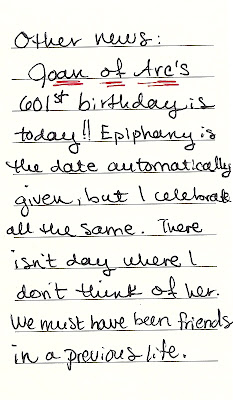 Other news:
Joan of Arc's
601st birthday is
today!! Epiphany is
the date automatically
given, but I celebrate
all the same. There
isn't day where I
don't think of her.
We must have been friends
in a previous life.